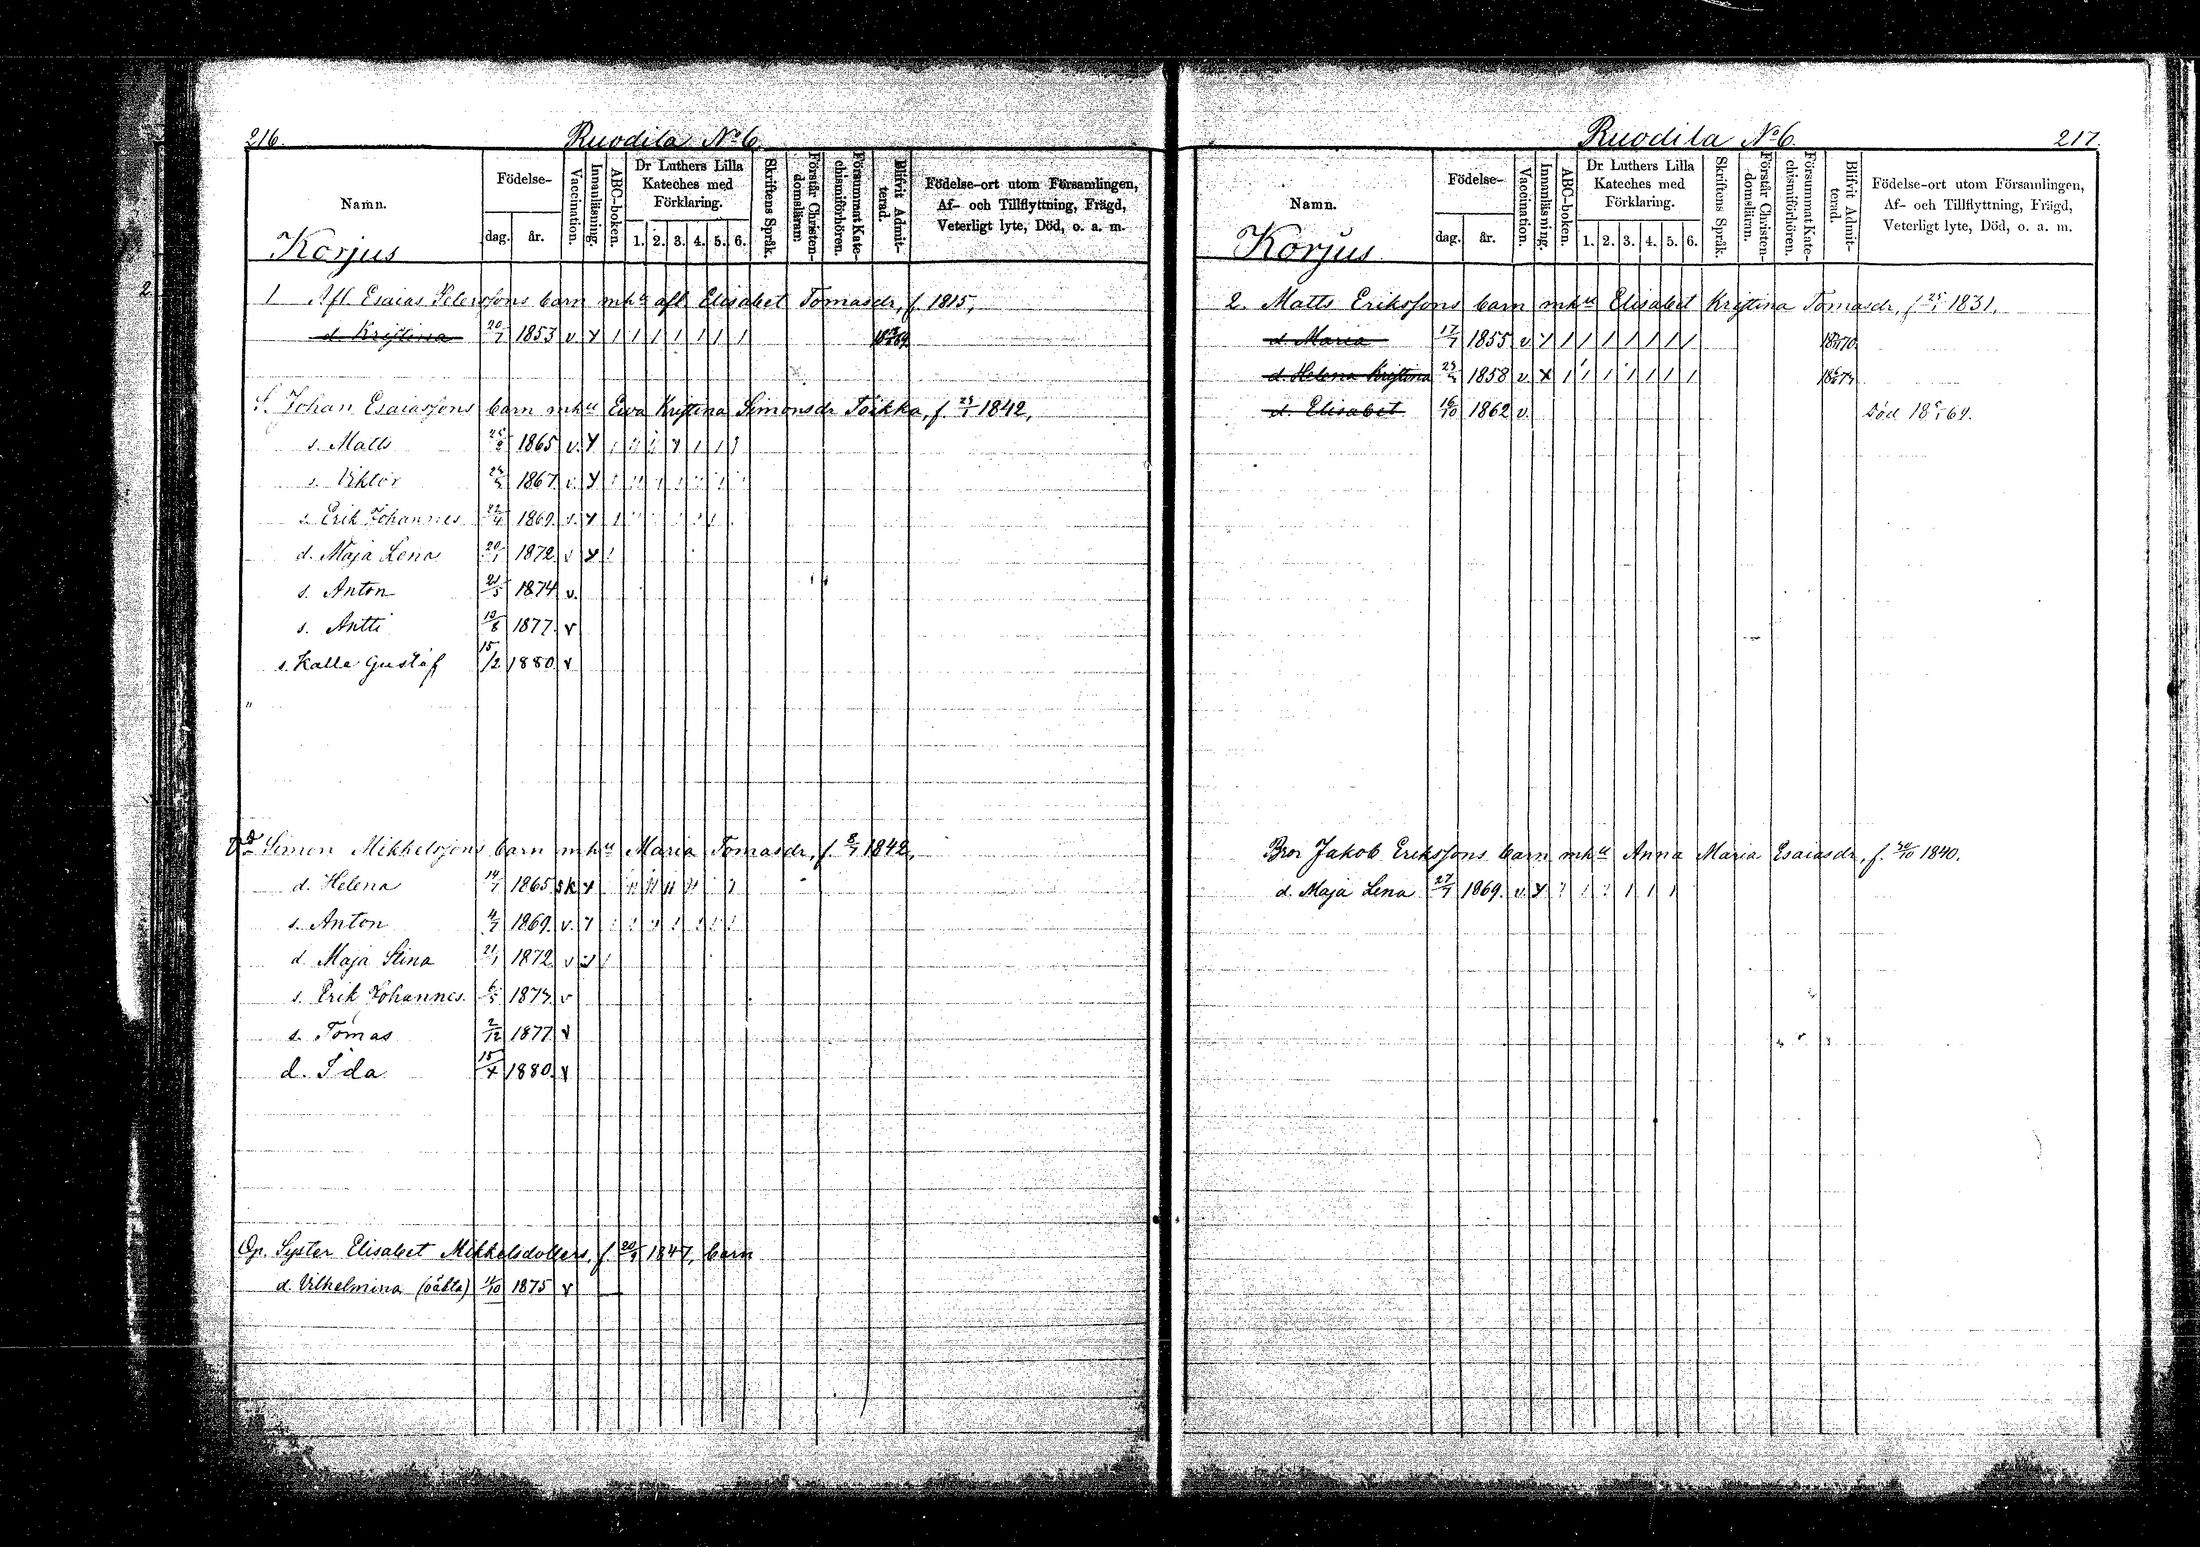 216. Ruodila No 6
Namn. Födelse- dag. år. Vaccination. Innanläsning. ABC-boken. Dr Luthers Lilla Kateches med Förklaring. 1. 2. 3. 4. 5. 6. Skriftens Språk. Förstår Christendomsläran. Försummat Katechismiförhören. Blifvit Admitterad. Födelse-ort utom Församlingen, Af- och Tillflyttning, Frägd, Veterligt lyte, Död, o. a. m.
Korjus
1 Afl Esaias Petersfons barn mhu afl Elisabet Tomasdr, f. 1815,
d. Kristina 20/7 1853 v
S. Johan Esaiasfons barn mhu Ewa Kristina Simonsdr Töikka, f. 1842,
s. Matts 1865 v.
s. Viktor 1867 v.
s. Erik Johannes 22/4 1869. v.
d. Maja Lena 20/1 1872 v
s. Anton 21/5 1874 v.
s. Antti 1877. v
s. Kalle Gustaf 15/2 1880 v
Simon Mikkelsfons barn mhu Maria Tomasdr, f. 8/7 1842,
d. Helena 14/1 1865 sk
s. Anton 1869. v.
d. Maja Stina 21/1 1872 v
s. Erik Johannes. 6/5 v
s. Tomas 2/12 1877 v
d. Ida 15/4 1880. v
Op. Syster Elisabet Mikkelsdotters, f. 20/9 1847, barn
d. Vilhelmina (oäkta) 1875 v
Ruodila No 6. 217.
Namn. Födelse- dag. år. Vaccination. Innanläsning. ABC-boken. Dr Luthers Lilla Kateches med Förklaring. 1. 2. 3. 4. 5. 6. Skriftens Språk. Förstår Christendomsläran. Försummat Katechismiförhören. Blifvit Admitterad. Födelse-ort utom Församlingen, Af- och Tillflyttning, Frägd, Veterligt lyte, Död, o. a. m.
Korjus
2. Matts Eriksfons barn mhu Elisabet Kristina Tomasdr, f 25/1 1831.
d. Maria 17/7 1855 v.
d. Helena Kristina 1858 v.
d. Elisabet 16/10 1862 v. död
Bror Jakob Eriksfons barn mhu Anna Maria Esaiasdr, f. 30/10 1840.
d. Maja Lena 27/7 1869. v